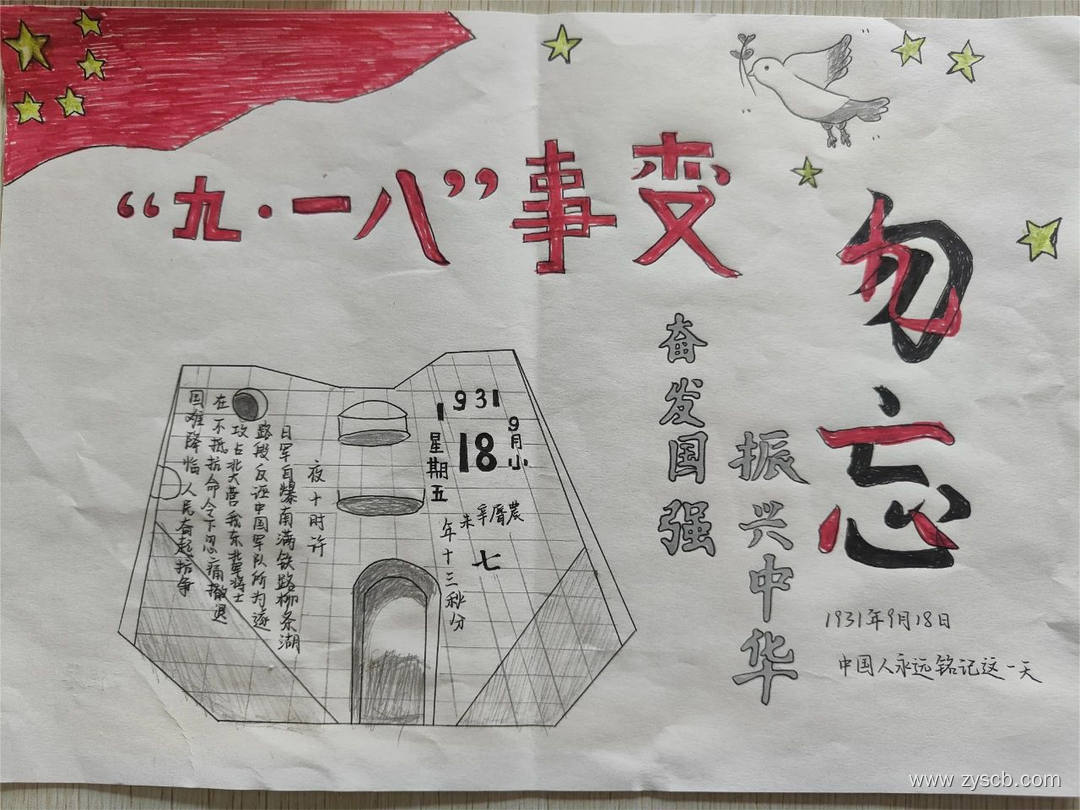 “九·一八”事变
勿忘
奋发国强
振兴中华
1931年9月18日
中国人永远铭记这一天
1931
9月小
18
星期五
農曆辛未
年十三秋分
七
夜十时许
日军自爆南满铁路柳条湖
路段反诬中国军队所为遂
攻占北大营我东北军将士
在不抵抗命令下忍痛撤退
国难降临人民奋起抗争
www.zyscb.com